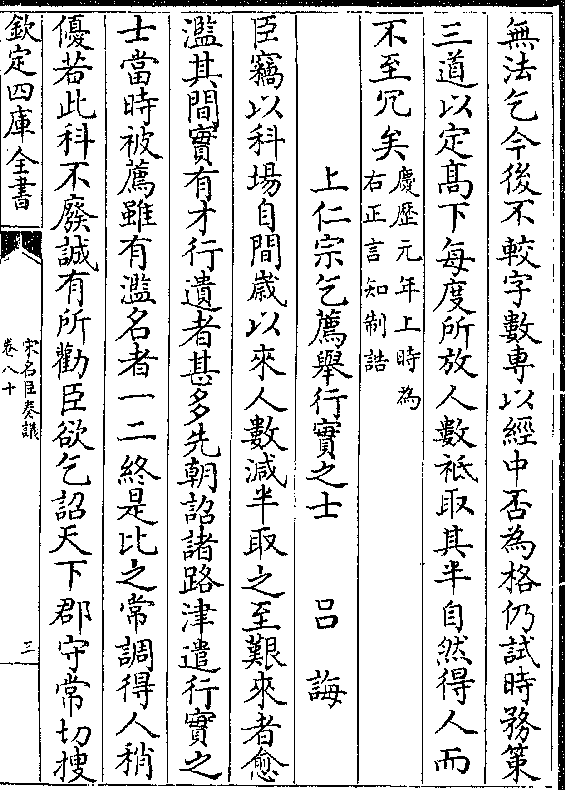 無法乞今後不較字數専以經中否為格仍試時務策
三道以定髙下每度所放人數祗取其半自然得人而
不至冗矣慶歷元年上時為
右正言知制誥
上仁宗乞薦舉行實之士 吕誨
臣竊以科場自間歲以來人數減半取之至艱來者愈
濫其間實有才行遺者甚多先朝詔諸路津遣行實之
士當時被薦雖有濫名者一二終是比之常調得人稍
優若此科不廢誠有所勸臣欲乞詔天下郡守常切搜
欽定四庫全書
宋名臣奏議
卷八十
三